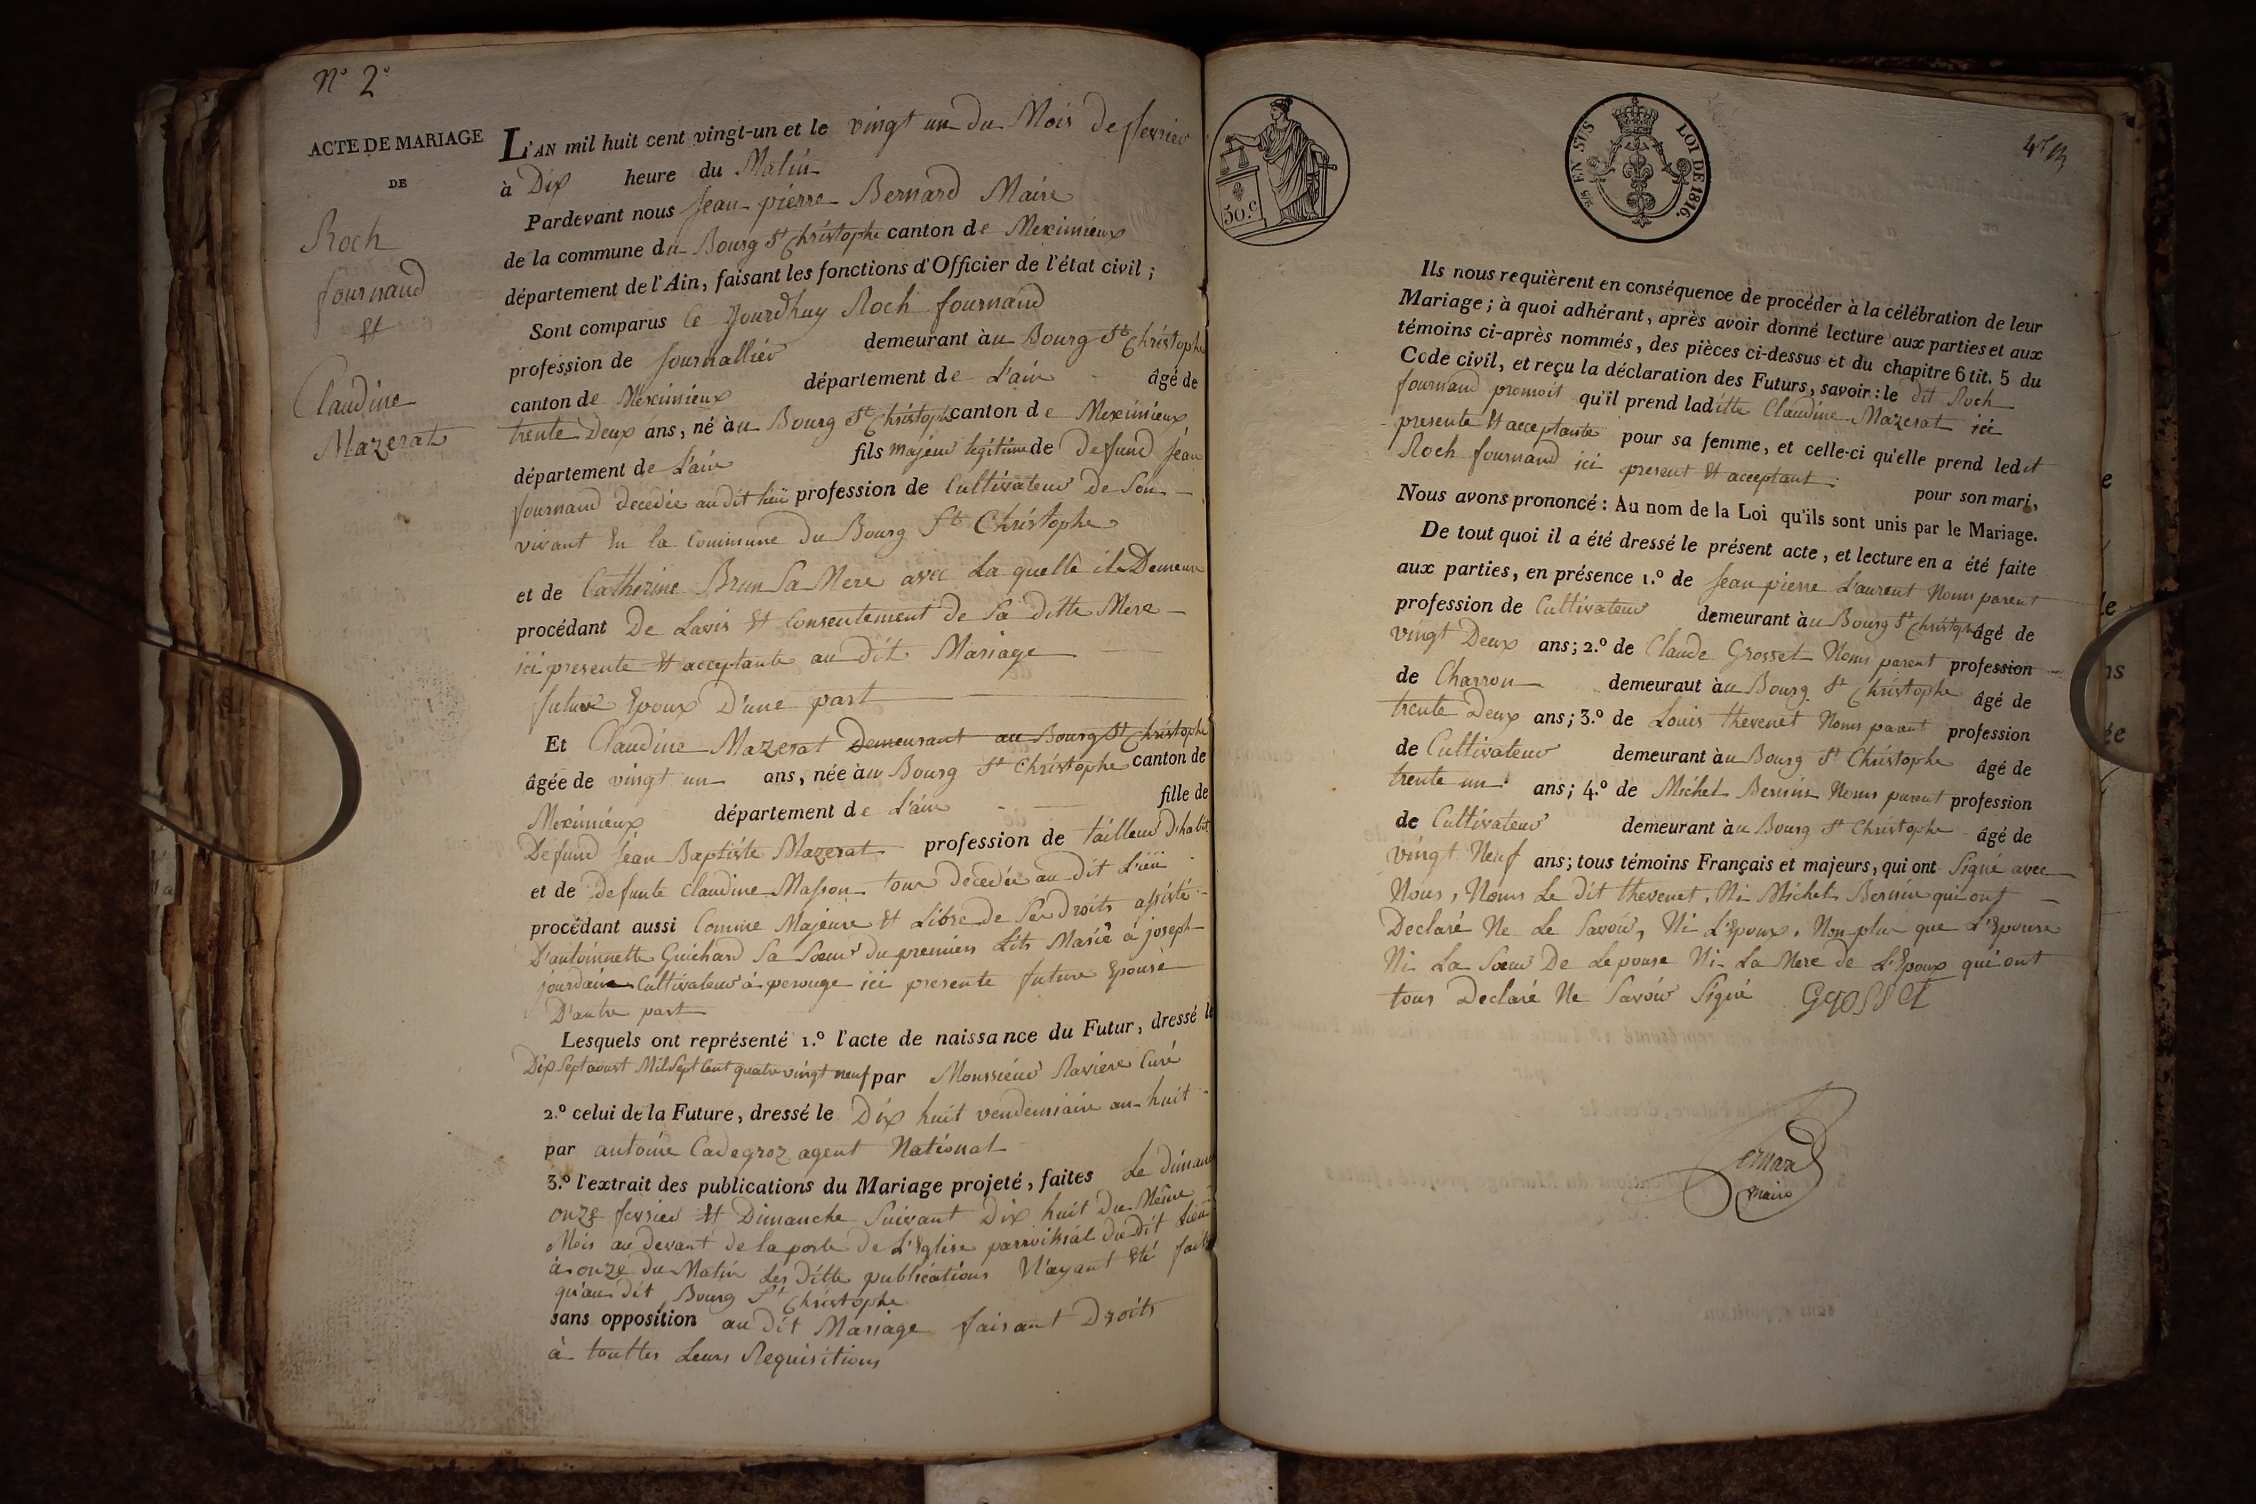 N° 2°
ACTE DE MARIAGE
DE
Roch
fournand
Et
Claudine
Mazerat
L'AN mil huit cent vingt-un et le vingt un du Mois de fevrier
à Dix heure du Matin
Pardevant nous Jean pierre Bernard Maire
de la commune du Bourg St Christophe canton de Meximieux
département de l'Ain, faisant les fonctions d'Officier de l'état civil ;
Sont comparus Ce Jourdhuy Roch fournand
profession de Journallier demeurant àu Bourg St Christophe
canton de Meximieux département de L'ain âgé de
trente Deux ans, né àu Bourg St Christophe canton de Meximieux
département de L'ain fils majeur legitime de Defund Jean
fournand decedée au dit lieu profession de Cultivateur De Son
vivant En la Commune du Bourg St Christophe
et de Catherine Brun Sa Mere avec La quelle il Demeure
procédant De Lavis Et Consentement de Sa ditte Mere
ici presente Et acceptante au dit Mariage
futur Epoux D'une part
Et Claudine Mazerat Demeurant au Bourg St Christophe
âgée de vingt un ans, née àu Bourg St Christophe canton de
Meximieux département de L'ain fille de
Defund Jean Baptiste Mazerat profession de tailleur D'habit
et de Defunte Claudine Masson tous decedée au dit Lieu
procédant aussi Comme Majeure Et Libre de Ses Droits assisté
D'antoinnette Guichard Sa Soeur du premiers Lits Marié à joseph
jourdain Cultivateur à perouge ici presente future Epouse
D'autre part
Lesquels ont représenté 1.° l'acte de naissance du Futur, dressé le
Dix Sept aoust Mil Sept Cent quatre vingt neuf par Monssieur Raviere Curé
2.° celui de la Future, dressé le Dix huit vendemiaire an huit
par antoine Cadegroz agent National
3.° l'extrait des publications du Mariage projeté, faites Le diman
onze fevrier Et Dimanche Suivant Dix huit Du Même
Mois au devant de la porte De L'Eglise parroiksial du dit Lieu
à onze du Matin Les Ditte publications N'ayant Eté faite
qu'au dit Bourg St Christophe
sans opposition au dit Mariage faisant Droits
à touttes Leurs Requisitions
50.c
EN SUS LOI DE 1816.
Ils nous requièrent en conséquence de procéder à la célébration de leur
Mariage ; à quoi adhérant, après avoir donné lecture aux parties et aux
témoins ci-après nommés, des pièces ci-dessus et du chapitre 6 tit. 5 du
Code civil, et reçu la déclaration des Futurs, savoir : le dit Roch
fournand promoit qu'il prend laditte Claudine Mazerat ici
presente Et acceptante pour sa femme, et celle-ci qu'elle prend ledit
Roch fournand ici present Et acceptant pour son mari,
Nous avons prononcé : Au nom de la Loi qu'ils sont unis par le Mariage.
De tout quoi il a été dressé le présent acte, et lecture en a été faite
aux parties, en présence 1.° de Jean pierre Laurent Noms parent
profession de Cultivateur demeurant àu Bourg St Christophe âgé de
vingt Deux ans ; 2.° de Claude Grosset Noms parent profession
de Charron demeuraut àu Bourg St Christophe âgé de
trente Deux ans ; 3.° de Louis thevenet Noms parent profession
de Cultivateur demeurant àu Bourg St Christophe âgé de
trente un ans ; 4.° de Michel Bernin Noms parent profession
de Cultivateur demeurant àu Bourg St Christophe âgé de
vingt Neuf ans ; tous témoins Français et majeurs, qui ont Signé avec
Nous, Noms Le Dit thevenet, Ni Michel Bernin qui ont
Declaré Ne Le Savoir, Ni L'Epoux, Non plus que L'Epouse
Ni La Soeur De Lepouse Ni La Mere de L'Epoux qui ont
tous Declaré Ne Savoir Signé Grosset
Bernard
maire